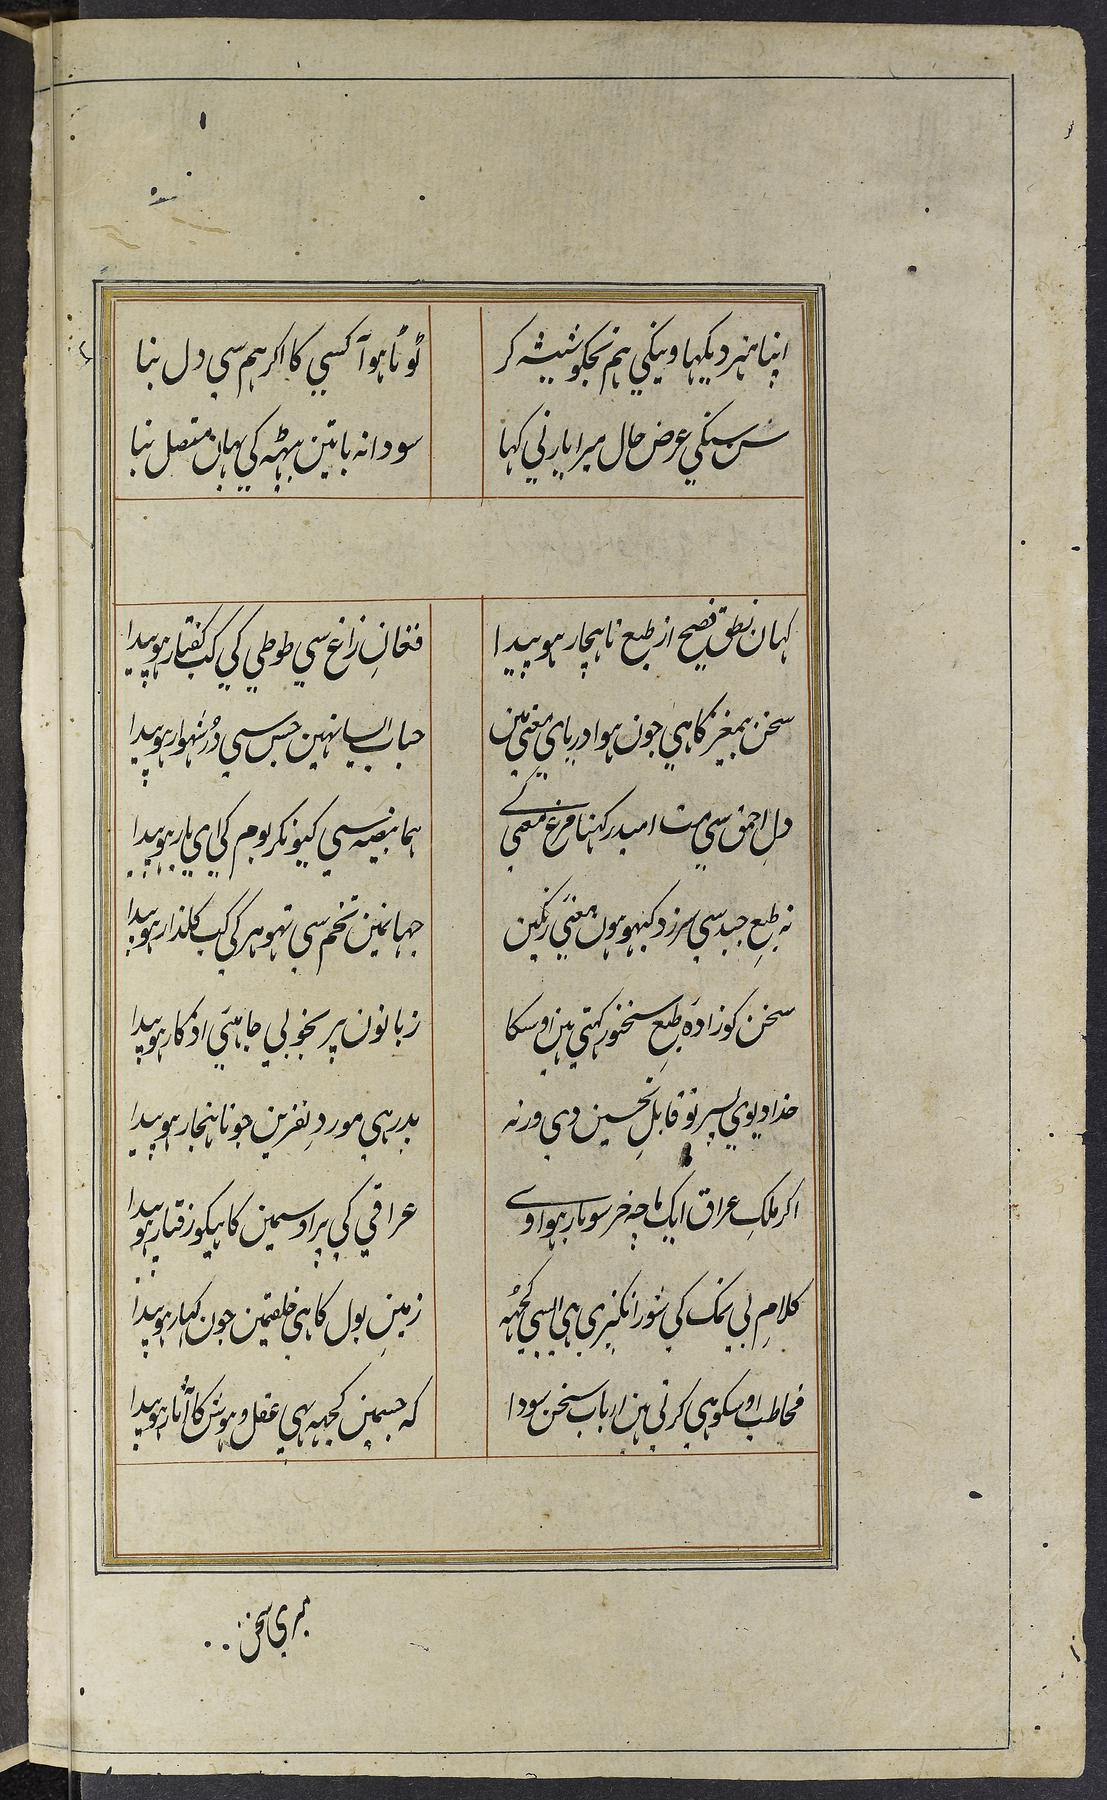 اپنا ہنر دیکھا وینگي ہم تجکو شیشہ کر
ٹوٹا ہوا کسي کا اکر ہم سي دل بنا
سن سنکي عرض حال میرا یار ني کہا
سودا نہ باتین بیٹھہ کي یہان متصل بنا
کہان نطق فصیح از طبع ناہنجار ہو پیدا
فغانِ زاغ سي طوطي کي کب کفتار ہو پیدا
سخن بمیغز کا ہي جون ہوا دریاي معني مین
حباب ایسا نہین جس سي دُر شہوار ہو پیدا
دلِ احمق سي مت امید رکہنا مرغ معني کے
ہما بیضہ سي کیونکر بوم کي اي یار ہو پیدا
نہ طبعِ جید سي سرزد کبہو ہون معنیَ رنکین
جہانمین تخم سي تہوہر کي کب کلذار ہو پیدا
سخن کو زادۂ طبعِ سخنور کہتي ہین اوسکا
زبانون پر بخوبي چاہئي اذکار ہو پیدا
خدا دیوي پسر تو قابلِ تحسین دي ورنہ
پدر ہي موردِ نفرین جو ناہنجار ہو پیدا
اکر ملکِ عراق ایک ماچہ خر سو بار ہو اوے
عراقي کي پر اوسمین کاہیکو رفتار ہو پیدا
کلامِ بي نمک کي شور انکیزي ہي ایسي کچہہ
زمینِ بول کا ہي خلقمین جون کہار ہو پیدا
مخاطب اوسکو ہي کرتي ہین ارباب سخن سودا
کہ جسمین کچہہ بہي عقل و ہوش کا آثار ہو پیدا
میري سخن